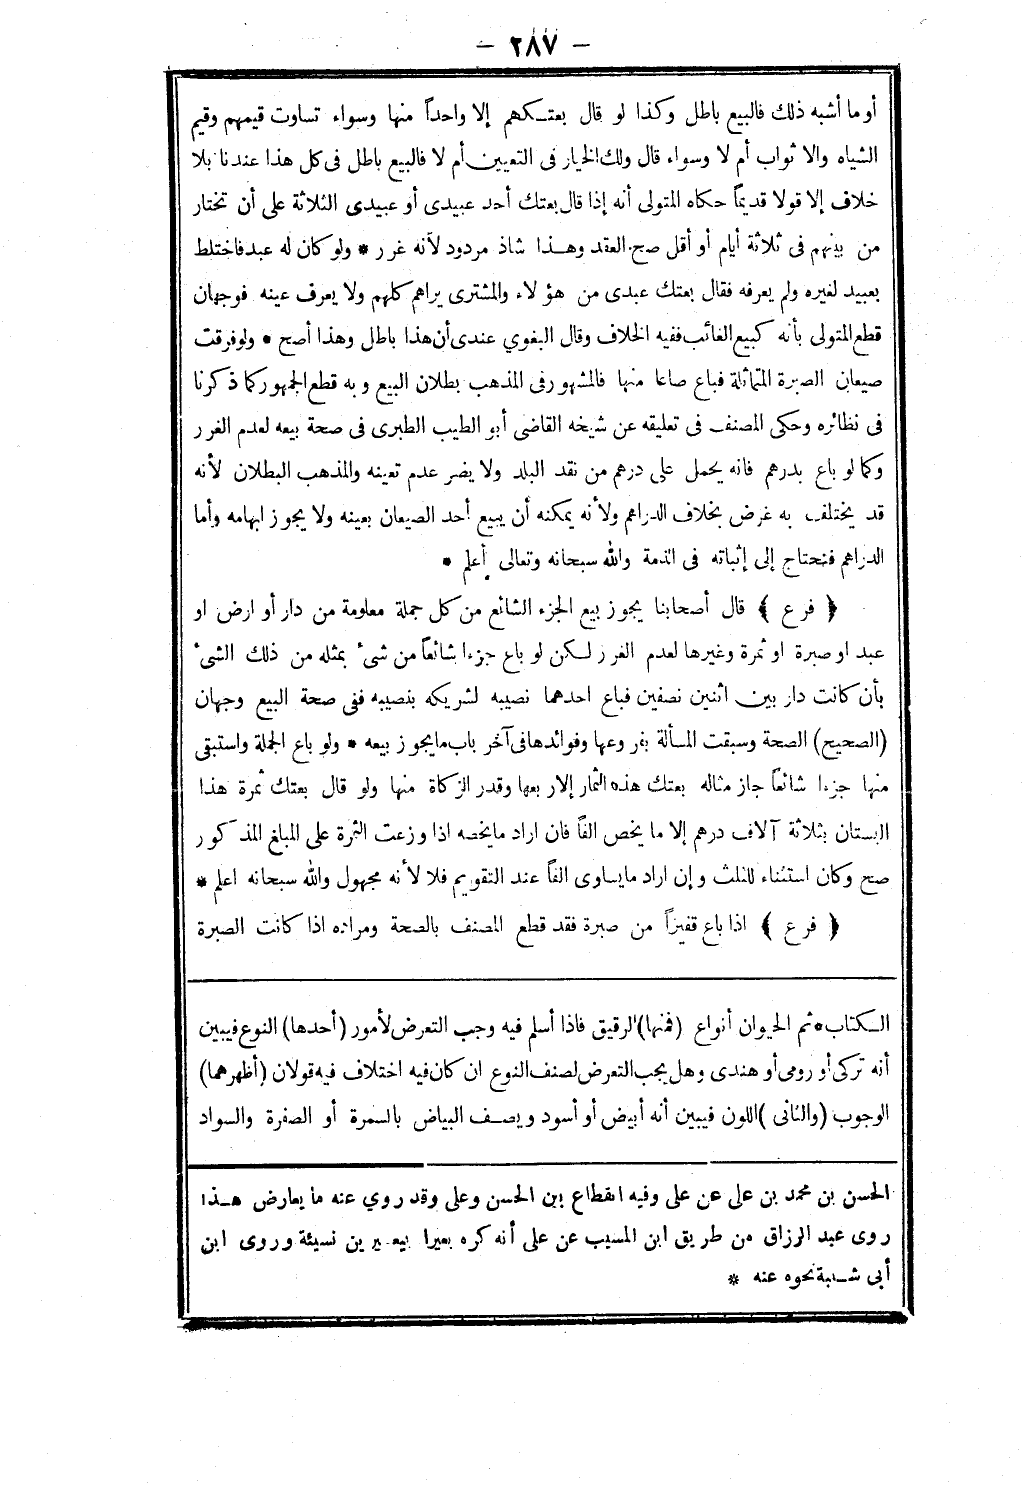 — ٢٨٧ —
أو ما أشبه ذلك فالبيع باطل وكذا لو قال بعتكهم إلا واحداً منها وسواء تساوت قيمهم وقيم
الشياه والاثواب أم لا وسواء قال ولك الخيار فى التعيين أم لا فالبيع باطل فى كل هذا عندنا بلا
خلاف إلا قولا قديماً حكاه المتولى أنه إذا قال بعتك أحد عبيدى أو عبيدى الثلاثة على أن تختار
من بينهم فى ثلاثة أيام أو أقل صح العقد وهذا شاذ مردود لأنه غرر * ولو كان له عبد فاختلط
بعبيد لغيره ولم يعرفه فقال بعتك عبدى من هؤلاء والمشترى يراهم كلهم ولا يعرف عينه فوجهان
قطع المتولى بأنه كبيع الغائب ففيه الخلاف وقال البغوي عندى أن هذا باطل وهذا أصح * ولو فرقت
صيعان الصبرة المتماثلة فباع صاعا منها فالمشهور فى المذهب بطلان البيع وبه قطع الجمهور كما ذكرنا
فى نظائره وحكى المصنف فى تعليقه عن شيخه القاضى أبو الطيب الطبرى فى صحة بيعه لعدم الغرر
وكما لو باع بدرهم فانه يحمل على درهم من نقد البلد ولا يضر عدم تعينه والمذهب البطلان لأنه
قد يختلف به غرض بخلاف الدراهم ولأنه يمكنه أن يبيع أحد الصيعان بعينه ولا يجوز ابهامه وأما
الدراهم فنحتاج إلى إثباته فى الذمة والله سبحانه وتعالى أعلم *
﴿ فرع ﴾ قال أصحابنا يجوز بيع الجزء الشائع من كل جملة معلومة من دار أو ارض او
عبد او صبرة او ثمرة وغيرها لعدم الغرر لكن لو باع جزءا شائعاً من شىء بمثله من ذلك الشىء
بأن كانت دار بين اثنين نصفين فباع احدهما نصيبه لشريكه بنصيبه ففى صحة البيع وجهان
(الصحيح) الصحة وسبقت المسألة بفروعها وفوائدها فى آخر باب ما يجوز بيعه * ولو باع الجملة واستبقى
منها جزءا شائعاً جاز مثاله بعتك هذه الثمار إلا ربعها وقدر الزكاة منها ولو قال بعتك ثمرة هذا
البستان بثلاثة آلاف درهم إلا ما يخص الفاً فان اراد ما يخصه اذا وزعت الثمرة على المبلغ المذكور
صح وكان استثناء للثلث وإن اراد ما يساوى الفاً عند التقويم فلا لأنه مجهول والله سبحانه اعلم *
﴿ فرع ﴾ اذا باع قفيزاً من صبرة فقد قطع المصنف بالصحة ومراده اذا كانت الصبرة
الكتاب * ثم الحيوان أنواع (فمنها) الرقيق فاذا أسلم فيه وجب التعرض لأمور (أحدها) النوع فيبين
أنه تركى أو رومى أو هندى وهل يجب التعرض لصنف النوع ان كان فيه اختلاف فيه قولان (أظهرهما)
الوجوب (والثانى) اللون فيبين أنه أبيض أو أسود ويصف البياض بالسمرة أو الصفرة والسواد
الحسن بن محمد بن على عن على وفيه انقطاع بين الحسن وعلى وقد روي عنه ما يعارض هذا
روى عبد الرزاق من طريق ابن المسيب عن على أنه كره بعيرا ببعيرين نسيئة وروى ابن
أبى شيبة نحوه عنه *